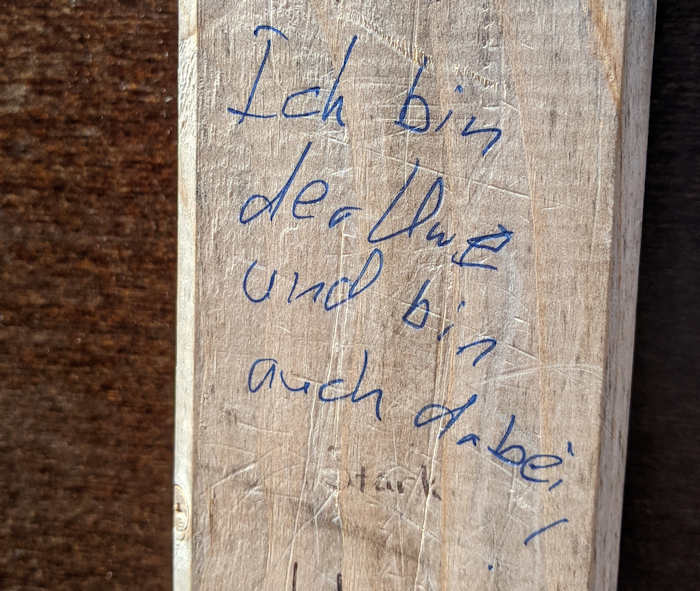 Ich bin
der Uwe
und bin
auch dabei,
Stark